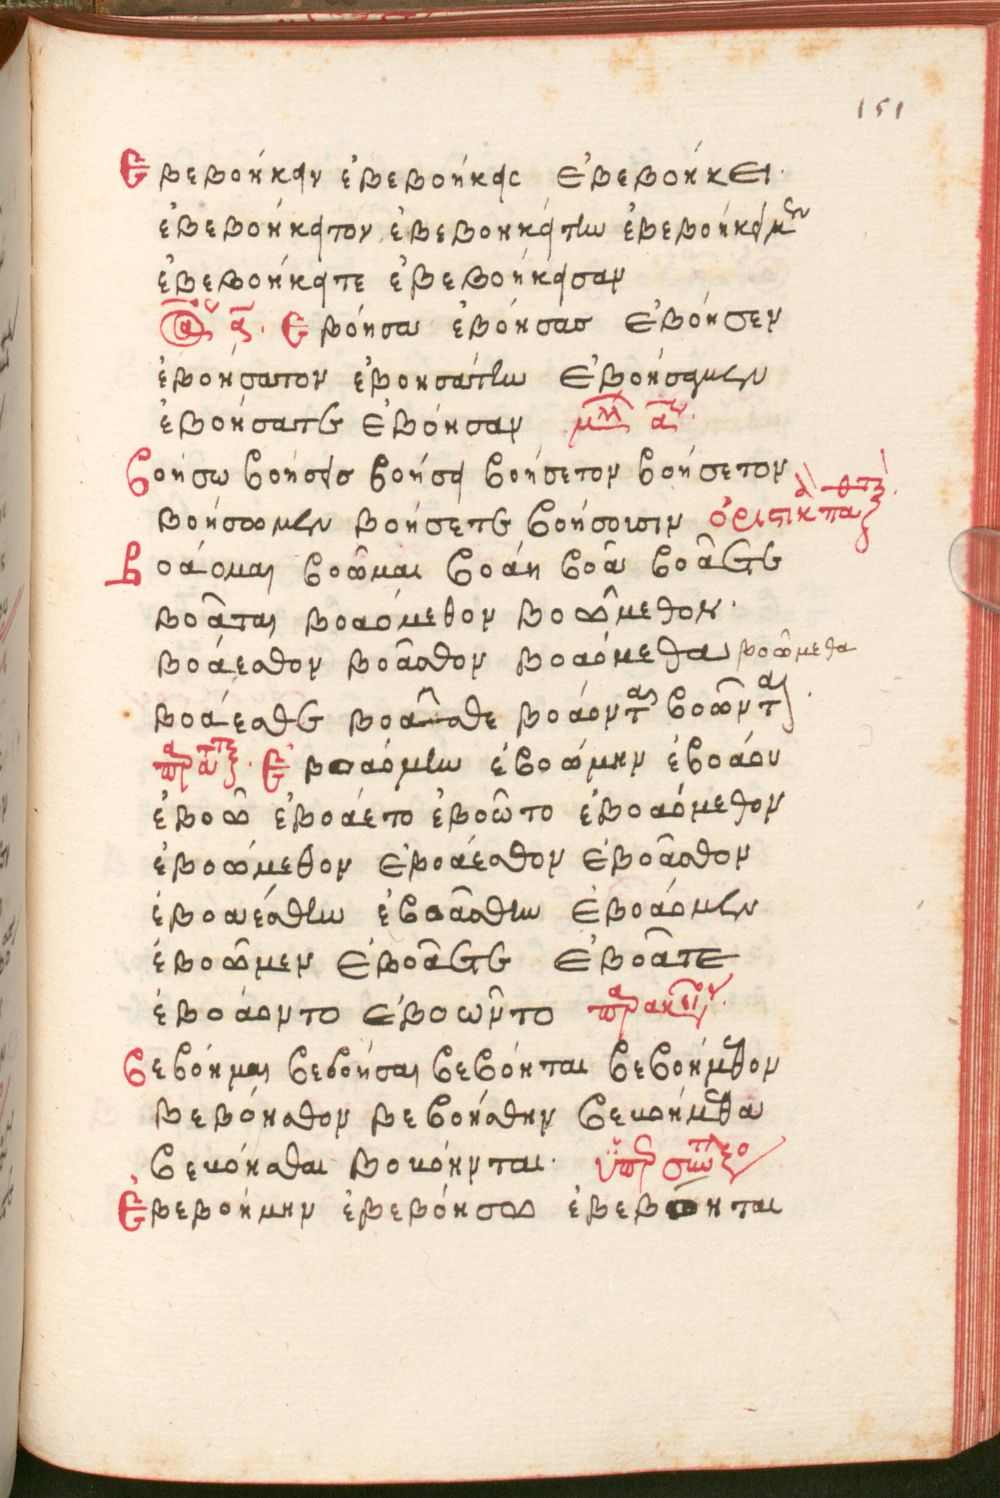 151
Ἐβεβοήκειν ἐβεβοήκεις ἐβεβοήκει.
ἐβεβοήκειτον ἐβεβοηκείτην ἐβεβοήκειμεν
ἐβεβοήκειτε ἐβεβοήκεισαν
Ἐβόησα ἐβόησας ἐβόησεν
ἐβοήσατον ἐβοησάτην ἐβοήσαμεν
ἐβοήσατε ἐβόησαν
βοήσω βοήσεις βοήσει βοήσετον βοήσετον
βοήσωμεν βοήσετε βοήσουσιν
Βοάομαι βοῶμαι βοάη βοᾶ βοᾶσε
βοᾶται βοαόμεθον βοώμεθον.
βοάεσθον βοᾶσθον βοαόμεθα βοώμεθα
βοάεσθε βοᾶσθε βοάονται βοῶνται.
Ἐβοαόμην ἐβοώμην ἐβοάου
ἐβοῶ ἐβοάετο ἐβοῶτο ἐβοαόμεθον
ἐβοώμεθον ἐβοάεσθον ἐβοᾶσθον
ἐβοαέσθην ἐβοάσθην ἐβοάομεν
ἐβοῶμεν ἐβοᾶσε ἐβοᾶτε
ἐβοάοντο ἐβοῶντο
βεβόημαι βεβόησαι βεβόηται βεβοήμεθον
βεβόησθον βεβοήσθην βεβοήμεθα
βεβόησθαι βοβόηνται.
Ἐβεβοήμην ἐβεβόησω ἐβεβόηται